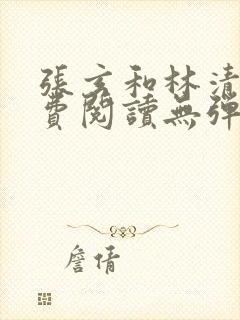 張玄和林清
費閱讀無彈
詹倩